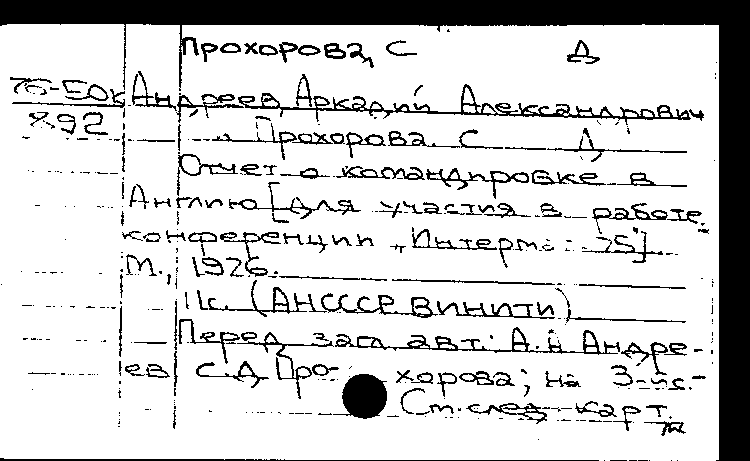 Прохорова, С Д
76-50к Андреев, Аркадий Александрович
892 „ Прохорова, С Д,
Отчет о командировке в
Англию [для участия в работе
конференции „Интерма : 75"]
М., 1976.
11с. (АНСССР ВИНИТИ)
Перед загл. авт.: А.А Андре-
ев, С.Д Про- хорова; на 3-йс.-
См.след карт.